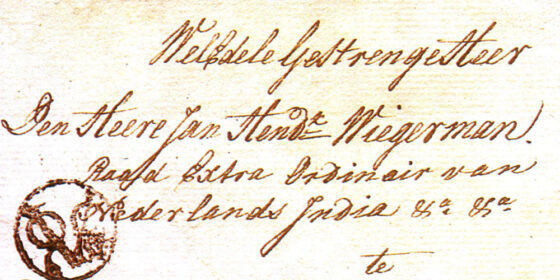 WelEdele Gestrenge Heer
Den Heere Jan Hend:k Wiegerman.
Raad Extra Ordinair van
Nederlands India &a &a
te